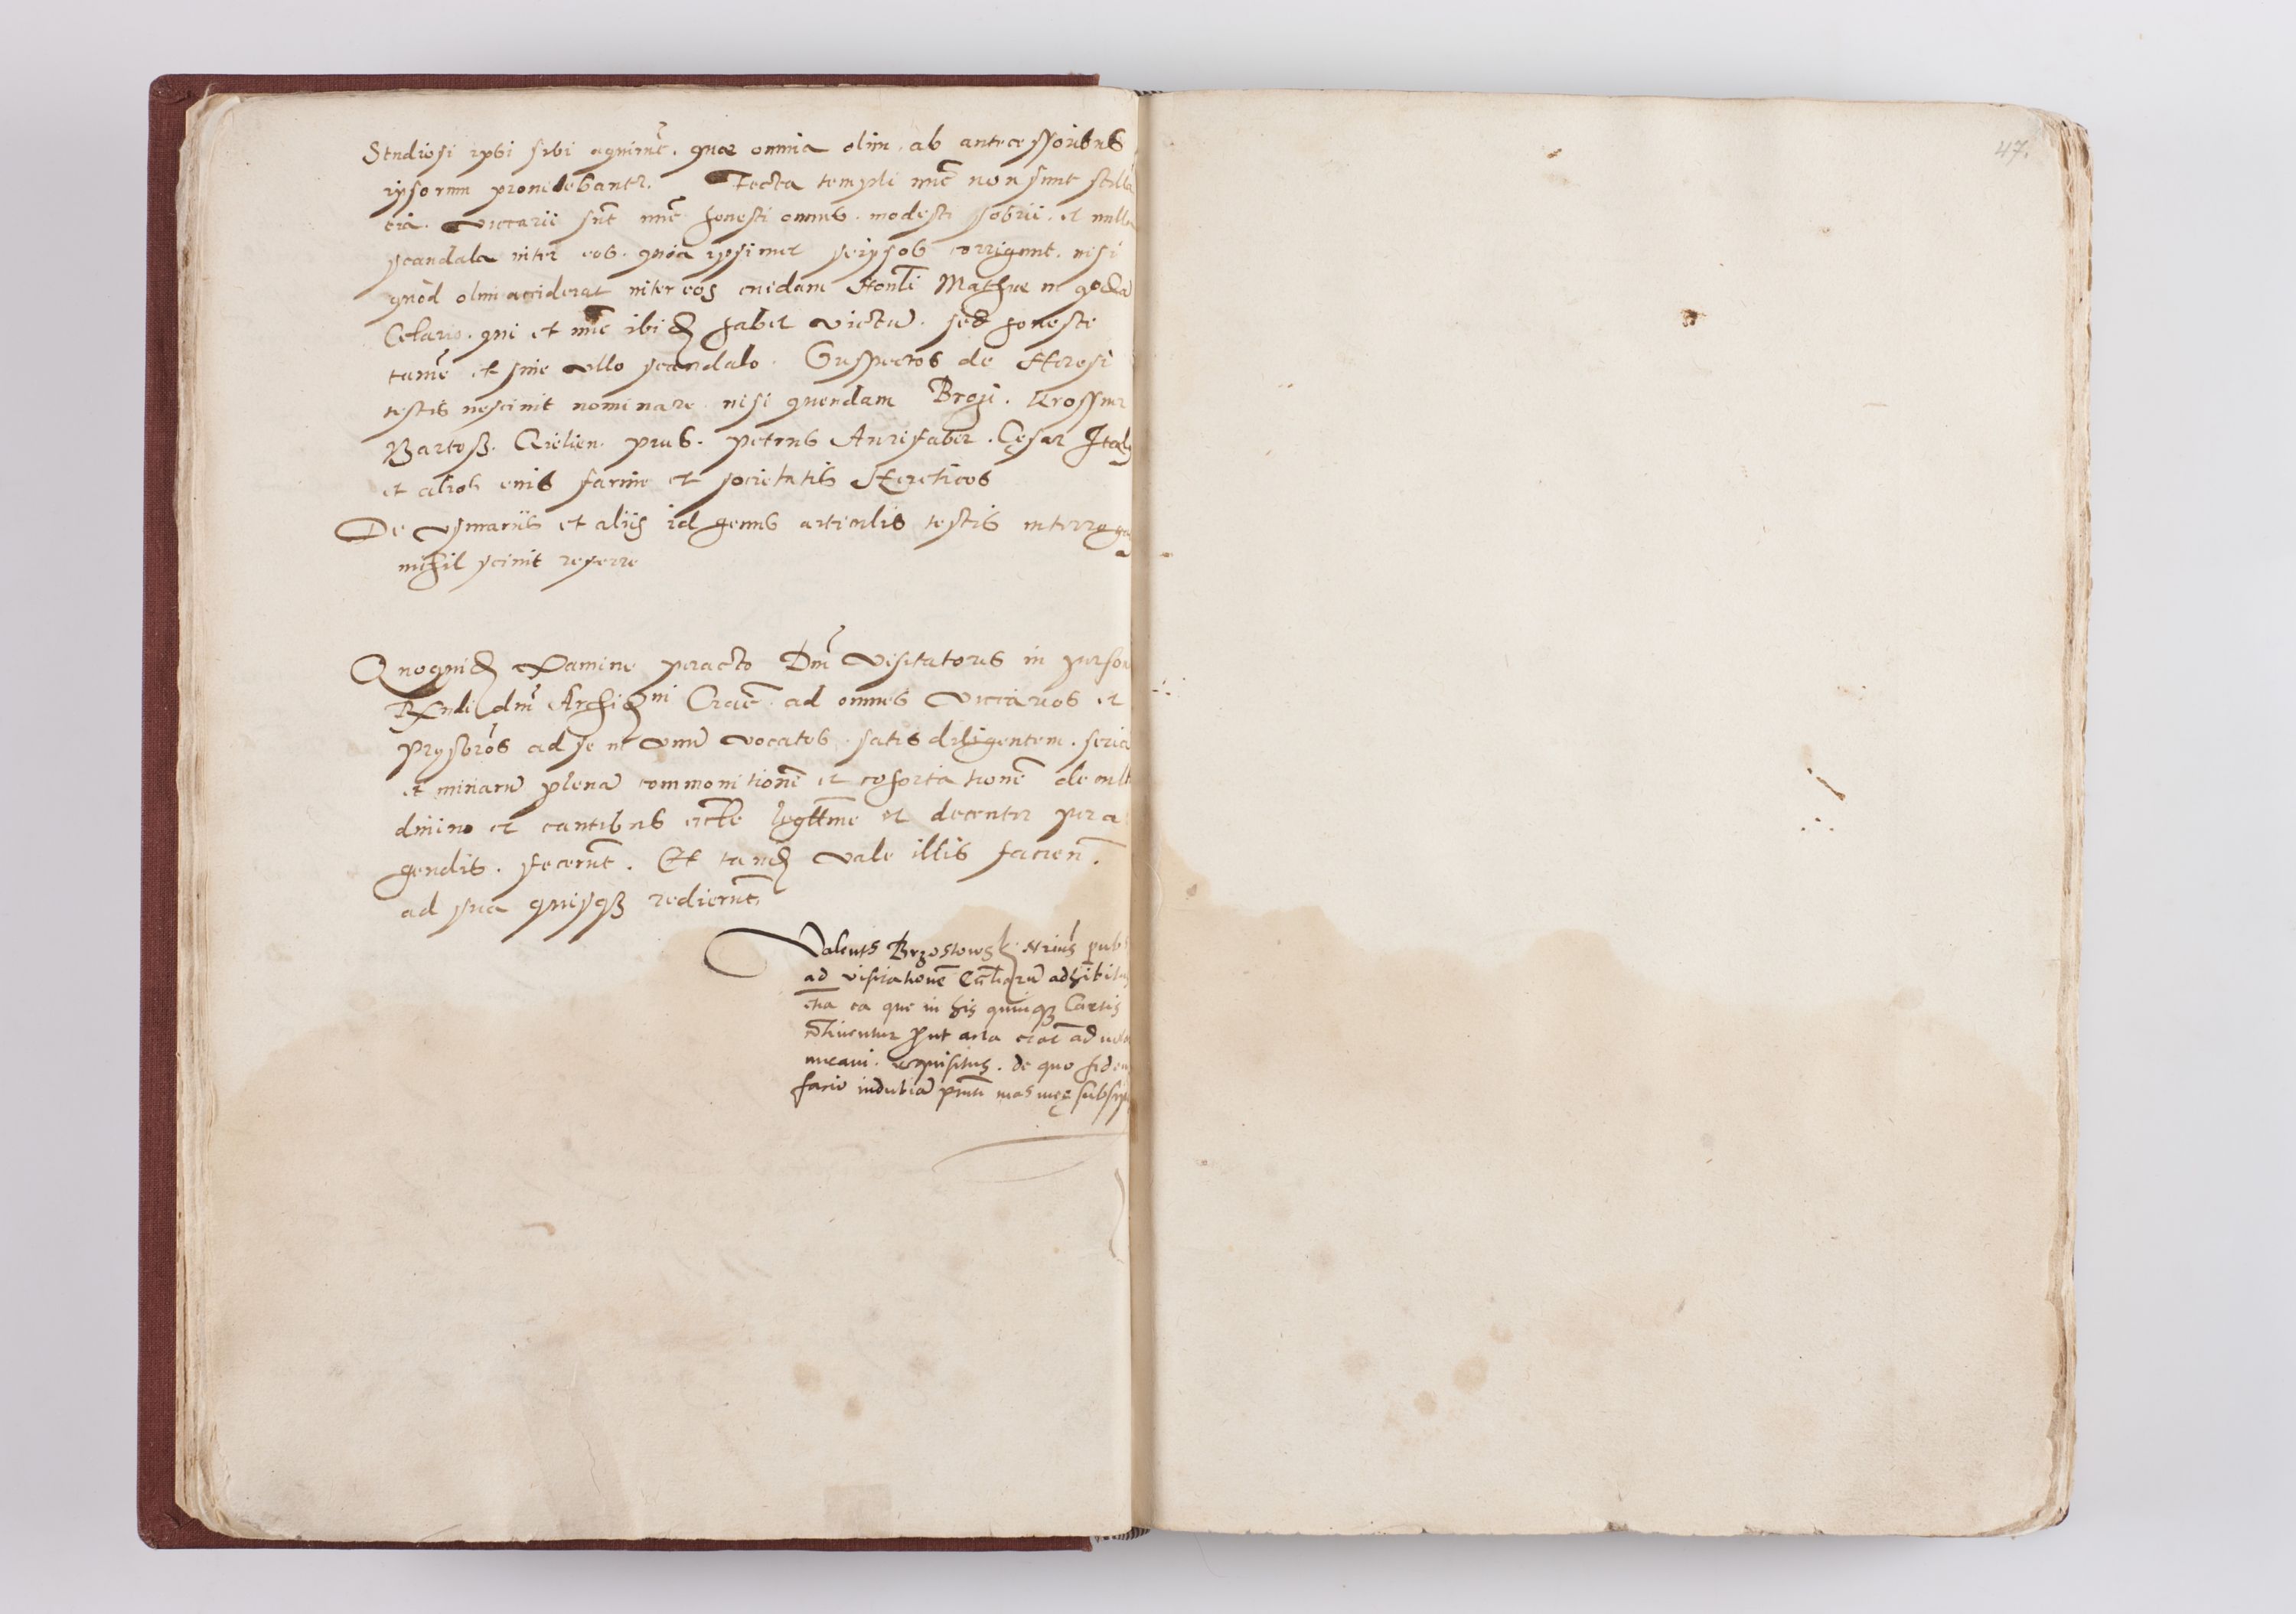 Studiosi ipsi sibi aquirūt. quae omnia olim ab antecessoribus
ipsorum prouidebantr. Tecta templi nūc non sunt stilla
tia. vicarii sūt nūc honesti omnes. modesti sobrii. et nulla
scandala inter eos. quia ipsimet seipsos corrigunt. nisi
quòd olim acciderat inter eos cuidam Honli Mathiae
qui et nūc ibid habet victū. sed honeste
tamē et sine vllo scandalo. Suspectos de Heresi
testis nesciuit nominare nisi quendam Broji. Krossnar
Bartoß. petrus Aurifaber. Cęsar Ital
et alios eius farine et societatis Hereticos
De vsurariis et aliis id genus articulis testis interroga
nihil sciuit referre
Quoquid examine peracto Dnī visitatores in person
dnī Archid ni Crac ad omnes vicarios et
prysbros ad se in vnū vocatos. satis diligentem. seria
et minarū plenā commonitionē et cohortationē de cult
diuino et cantibus eccle legittime et decenter pera
gendis. fecerūt. Et tand vale illis facien.
ad sua quisqȝ redierūt.
Valents Brzostowski Nrius pub
ad visitationē adhibitus
etia ea que in his quinqȝ Cartis
cōtinentur put acta erāt
requisitus. de quo fidem
facio indubiā manus meę subscrip
47.